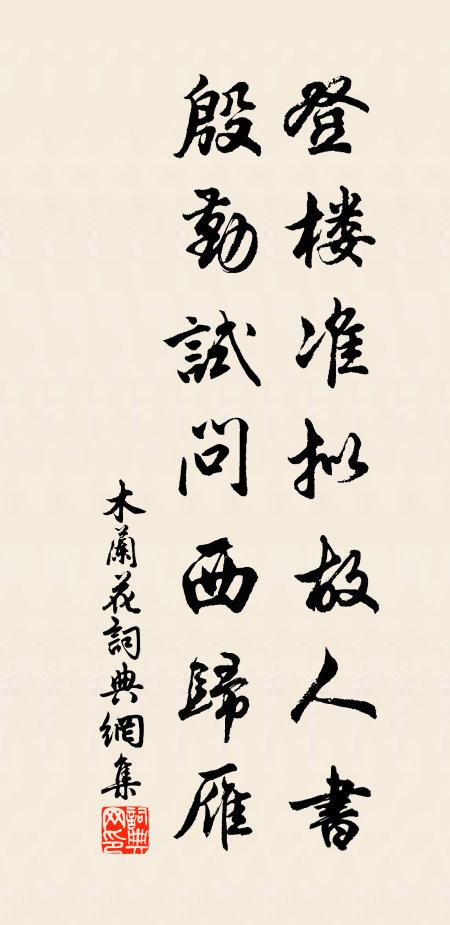 登楼准拟故人書
殷勤試問西歸雁
木蘭花詞典網集
詞典網印